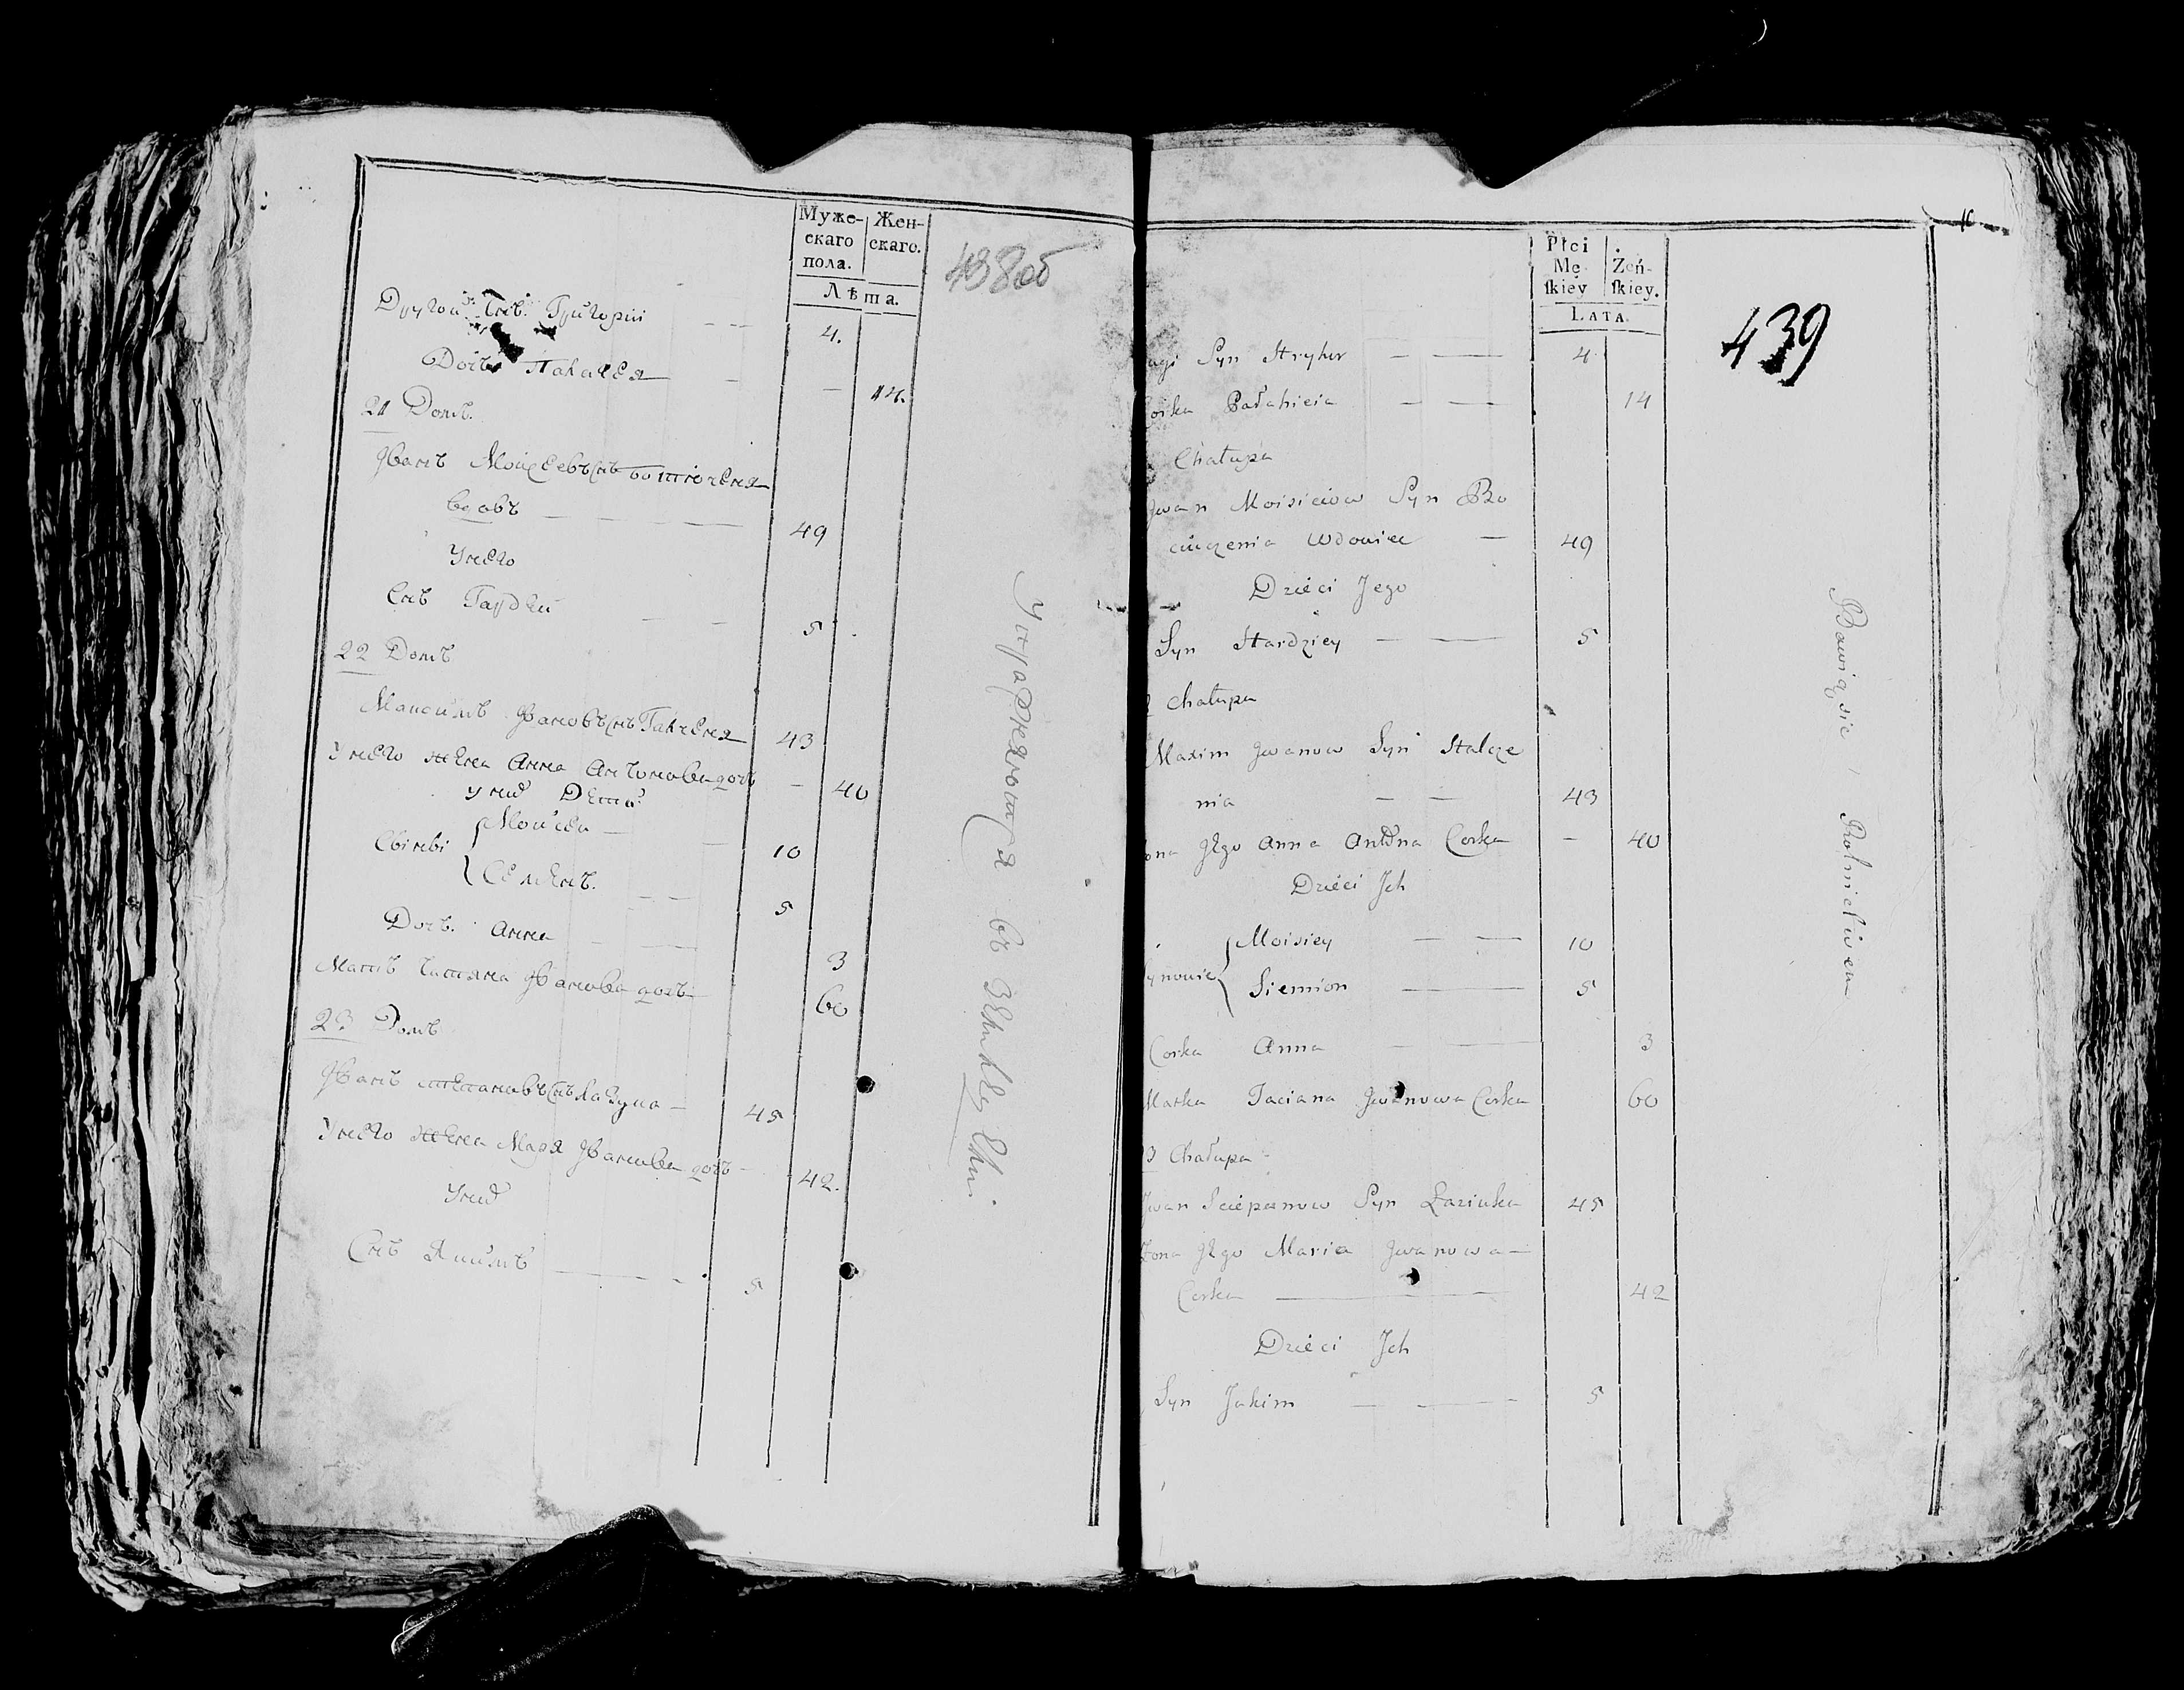 Муже-
скаго
пола.
Жен-
скаго.
Лѣта.
438об
Другои Снъ Григорiи 4.
Дочь Палагея 14.
21 Домъ.
Иванъ Моисеевъ Снъ
вдовъ 49
У него
Снъ Гардеи 5
22 Домъ
Максимъ Ивановъ Снъ Галченя 43
У него жена Анна Антонова дочь 40
у них дети
Сыны Моисеи 10
Семенъ. 5
Дочь. Анна 3
Мать Татяна Иванова дочь 60
23 Домъ
Иванъ Степановъ Снъ Лазука 45
У него жена Маря Иванова дочь 42.
У них
Снъ Яким 5
Упражняются въ
16
Płci
Mę-
skiey
Żeń-
skiey.
LATA.
439
ugi Syn Hryhor 4
orka Pałahieia 14
Chałupa
Jwan Moisieiow Syn Bo
Wdowiec 49
Dzieci Jego
Syn Hardziey 5
2 Chałupa
Maxim Jwanow Syn Halcze
nia 43
ona Jego Anna Corka 40
Dzieci Jch
ynowie Moisiey 10
Siemion 5
Corka Anna 3
Matka Taciana Jwanowa Corka 60
3 Chałupa
Jwan Sciepanow Syn Łaziuka 45
Żona Jego Maria Jwanowa
Corka 42
Dzieci Jch
Syn Jakim 5
Bawią sie Rolnictwem